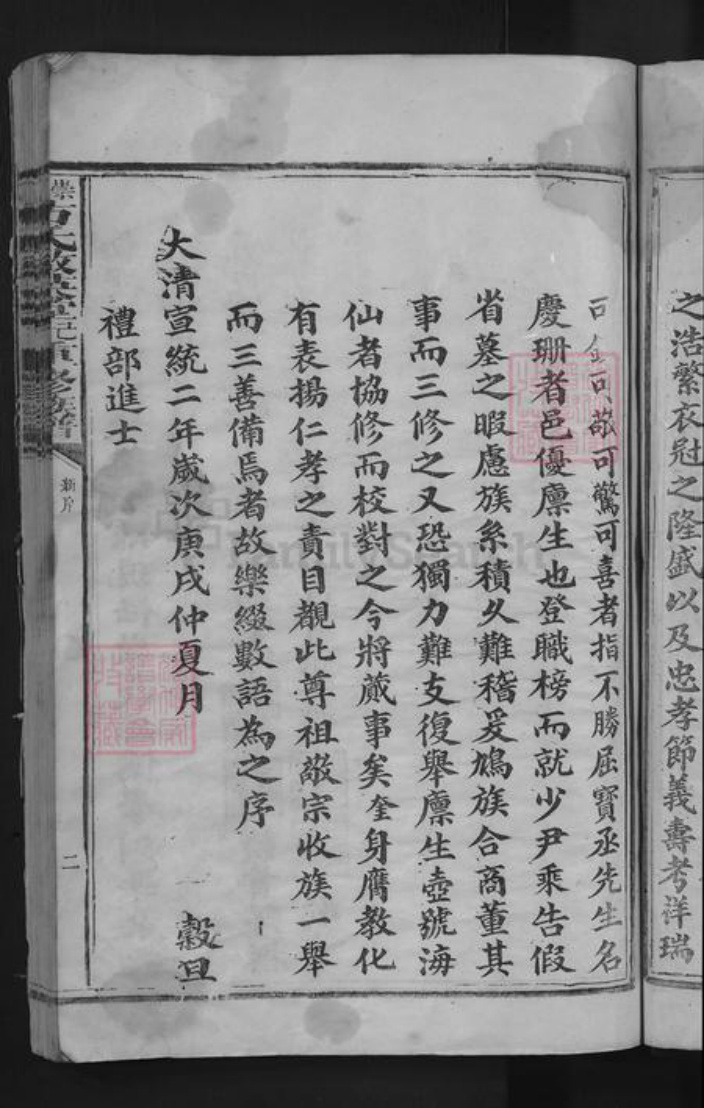 之浩繁衣冠之隆盛以及忠孝節義壽考洋瑞
可敬可驚可喜者指不勝屈寶丞先生名
慶珊者邑優廩生也登職榜而就少尹乘告假
省墓之暇慮族系積久難稽爰鳩族合商董其
事而三修之又恐獨力難支復舉廪生壺號海
仙者協修而校對之今將蕆事矣奎身膺教化
有表揚仁孝之責目覩此尊祖敬宗收族一舉
而三善備焉者故樂綴數語為之序
大清宣統二年歲次庚戌仲夏月 穀旦
禮部進士
二
FamilySearch